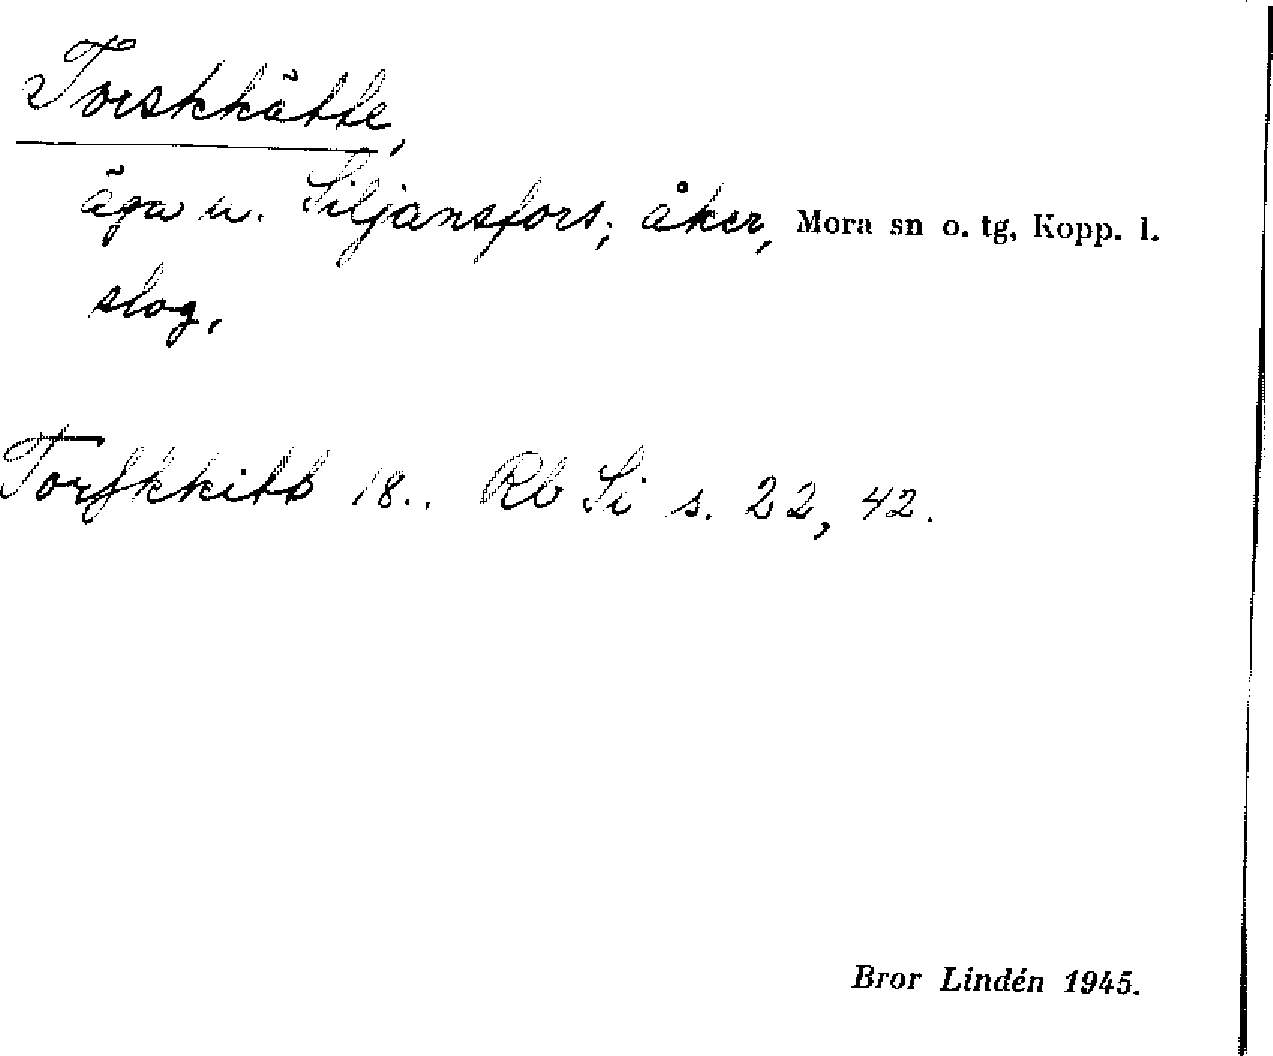 Torskkätte,
äga u. Siljansfors; åker, Mora sn o. tg, Kopp. l.
slog,
Torfkkitt 18.. Rb Si s. 22, 42.
Bror Lindén 1945.